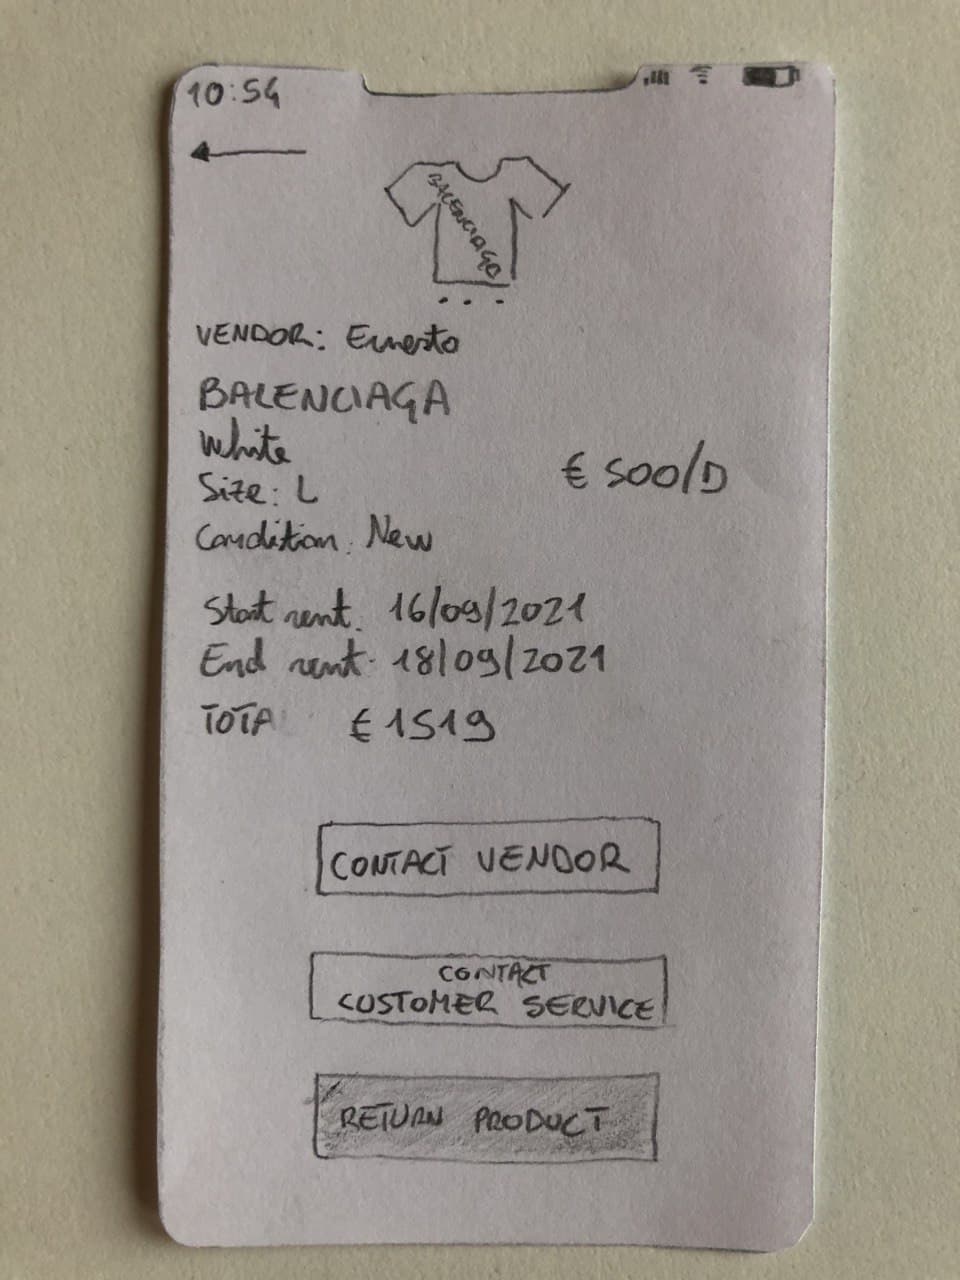 10:54
BALENCIAGA
VENDOR: Ernesto
BALENCIAGA
White
€ 500/D
Size: L
Condition: New
Start rent: 16/09/2021
End rent: 18/09/2021
TOTA € 1519
CONTACT VENDOR
CONTACT
CUSTOMER SERVICE
RETURN PRODUCT